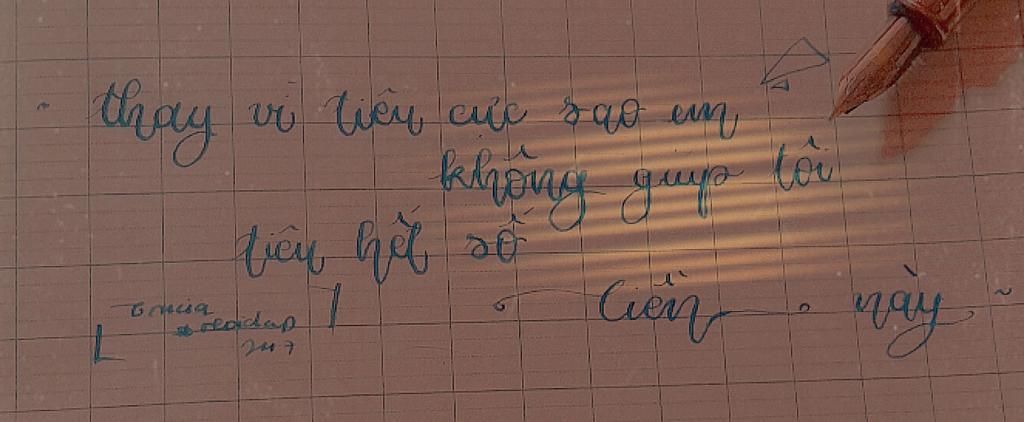 thay vì tiêu cực sao em
không giúp tôi
tiêu hết số
tiền này